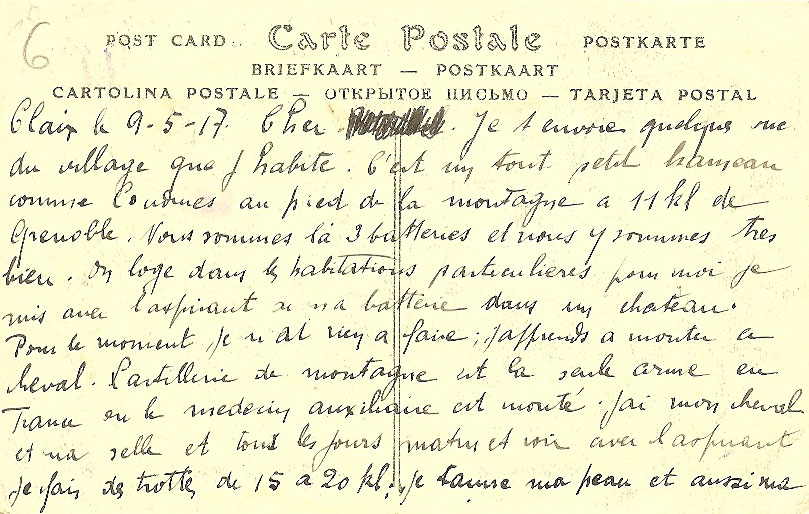 6
POST CARD Carte Postale POSTKARTE
BRIEFKAART — POSTKAART
CARTOLINA POSTALE — ОТКРЫТОЕ ПИСЬМО — TARJETA POSTAL
Claix le 9-5-17. Cher . Je t envoie quelque vue
du village que j habite. C'est un tout petit hameau
comme au pied de la montagne a 11 kl de
Grenoble. Nous sommes là 3 batteries et nous y sommes tres
bien. on loge dans les habitations particulieres pour moi je
suis avec l'aspirant de ma batterie dans un chateau.
Pour le moment je n ai rien a faire ; j'apprends a monter a
cheval. L'artillerie de montagne est la seule arme en
France ou le medecin auxiliaire est monté. J'ai mon cheval
et ma selle et tous les jours matin et soir avec l'aspirant
je fais des trottes de 15 a 20 kl. je tanne ma peau et aussi ma